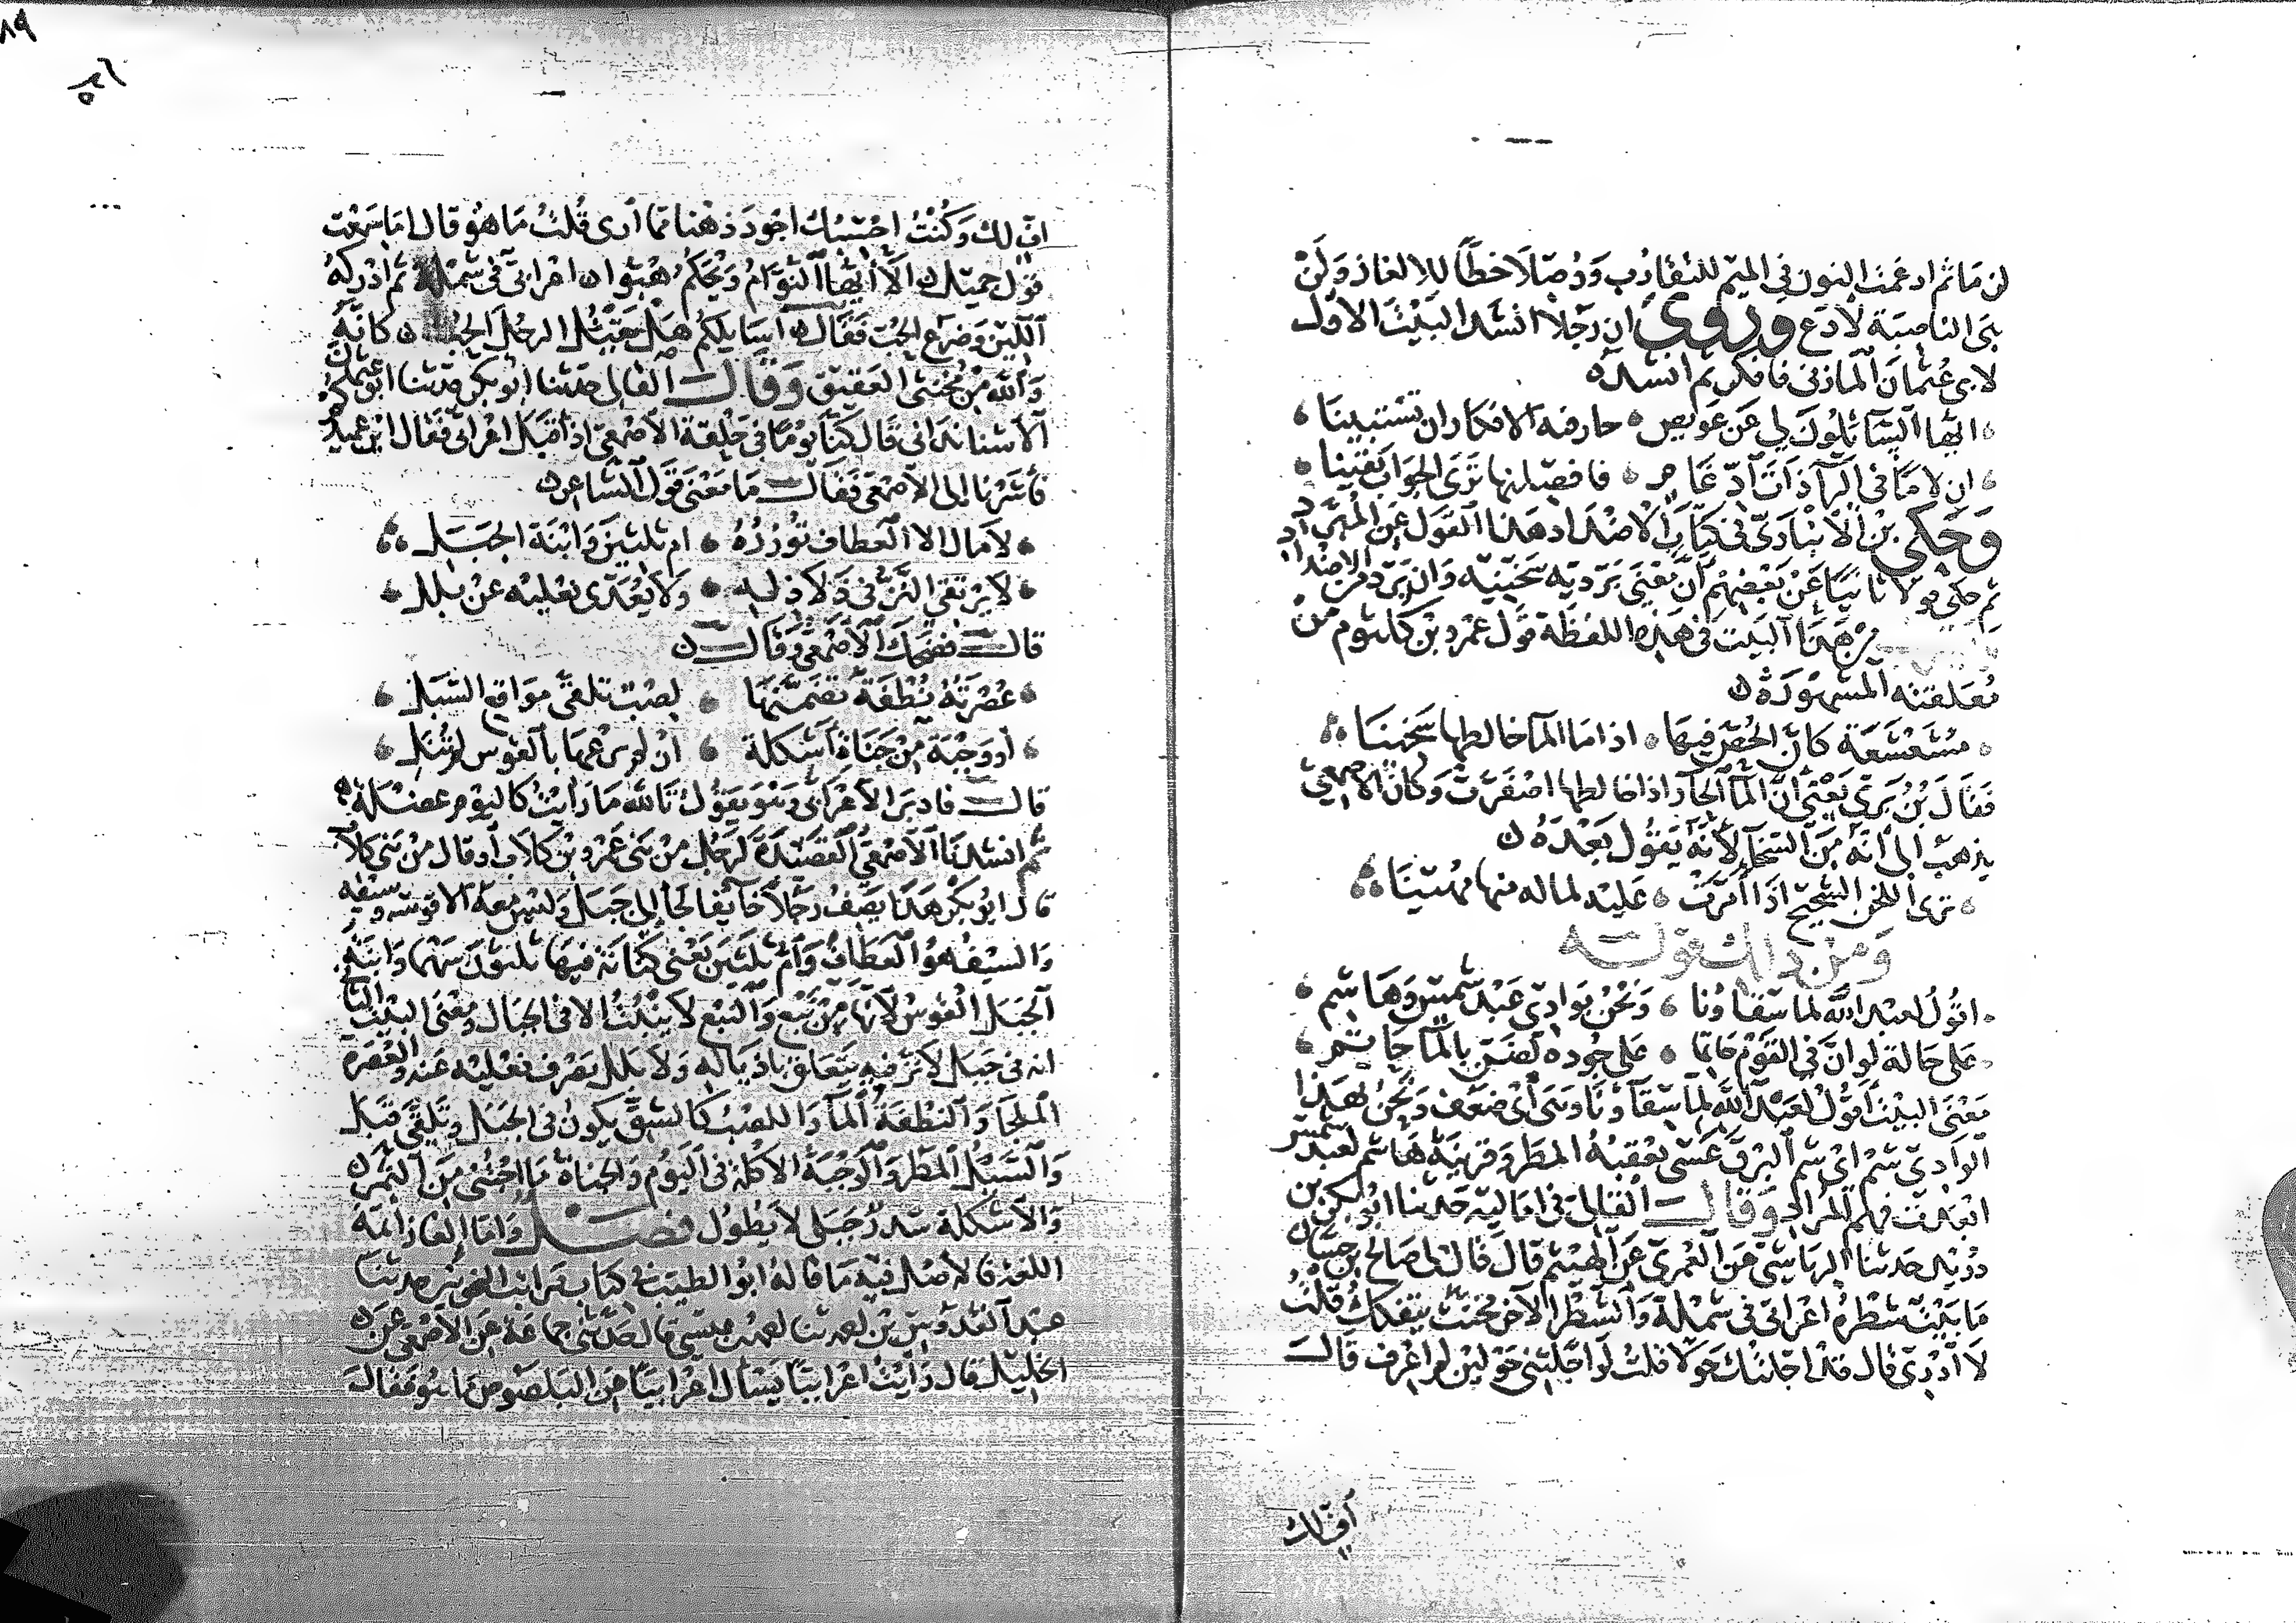 لن مَا ثم ادغمت النون في الميم للتقارب ووصلا خطا للالغاز ولن
هي الناصبة لادع وروي ان رجلا انشد البيت الاول
لابي عثمان المازني فافكر ثم انشده
ايها السائلون لي عن عويص حار فيه الافكار ان تستبينا
ان لاما في الرا ذات ادغام فافصلنها ترى الجواب يقينا
وحكى بن الانباري في كتاب الاضداد هذا القول عن المبرد
ثم حكى قولا ثانيا عن بعضهم ان معنى برديه سخنيه وان برد من الاضداد
من هذا البيت في هذه اللفظة قول عمرو بن كلثوم من
معلقته المشهورة
مشعشعة كان الحص فيها اذا ما الما خالطها سخينا
فقال بن بري يعني ان الما الحار اذا خالطها اصفرت وكان الاصمعي
يذهب الى انه من السخا لانه يقول بعده
ترى اللحز الشحيح اذا امرت عليه لماله فيها مهينا
ومن ذلك قوله
اقول لعبد الله لما سقاونا ونحن بوادي عبد شمس وهاشم
على حالة لو ان في القوم حاتما على جوده لضن بالما حاتم
معنى البيت اقول لعبد الله لما سقاونا وهى اي ضعف ونحن بهذا
الوادي شم اي شم البرق عسى يعقبه المطر وقرينة هاشم لعبد شمس
ابعدت فهم المراد وقال القالي في اماليه حدثنا ابو بكر بن
دريد حدثنا الرياشي عن العمري عن الهيثم قال قال لي صالح بن حسان
ما بيت شطره اعرابي في شملة والشطر الاخر مخنث يتفكك قلت
لا ادري قال قد اجلتك حولا قلت لو اجلتني حولين لم اعرف قال
اف لك
اف لك وكنت احسبك اجود ذهنا مما ارى قلت ما هو قال اما سمعت
قول جميل الا ايها النوام ويحكم هبوا اعرابي في شملة ثم ادركه
اللين وضرع الحب فقال اسايلكم هل يقتل الرجل الحب كانه
والله من مخنثي العقيق وقال القالي حدثنا ابو بكر حدثنا ابو عثمان
الاشنانداني قال كنا يوما في حلقة الاصمعي اذ اقبل اعرابي فقال اين عميدكم
فاشرنا الى الاصمعي فقال ما معنى قول الشاعر
لا مال الا العطاف تؤزره ام ثلثين وابنة الجبل
لا يرتقي النز في ذلاذله ولا يعدي نعليه عن بلل
قال فضحك الاصمعي وقال
عصرته نطفة تضمنها لصب تلقى مواقع السبل
او وجبة من جناة اشكلة ان لم يرعها بالقوس لم تنل
قال فادبر الاعرابي وهو يقول تالله ما رايت كاليوم عضلة
ثم انشدنا الاصمعي القصيدة لرجل من بني عمرو بن كلاب او قال من بني كلاب
قال ابو بكر هذا يصف رجلا خائفا لجا الى جبل وليس معه الا قوسه وسيفه
والسيف هو العطاف وام ثلثين يعني كنانة فيها ثلثون سهما وابنة
الجبل القوس لانها من نبع والنبع لا ينبت الا في الجبال ومعنى البيت الثاني
انه في جبل لا نز فيه يتعلق باذياله ولا بلل يصرف نعليه عنه والعصرة
الملجا والنطفة الما واللصب كالشق يكون في الجبل وتلقى قبل
والسبل المطر والوجبة الاكلة في اليوم والجناة ما اجتني من الثمر
والاشكلة سدر جبلي لا يطول فصل واما الغاز ائمة
اللغة فالاصل فيه ما قاله ابو الطيب في كتاب مراتب النحويين حدثنا
عبد القدوس بن احمد ثنا احمد بن عيسى قال حدثني جماعة عن الاصمعي عن
الخليل قال رايت اعرابيا يسال اعرابيا عن البلصوص ما هو فقال